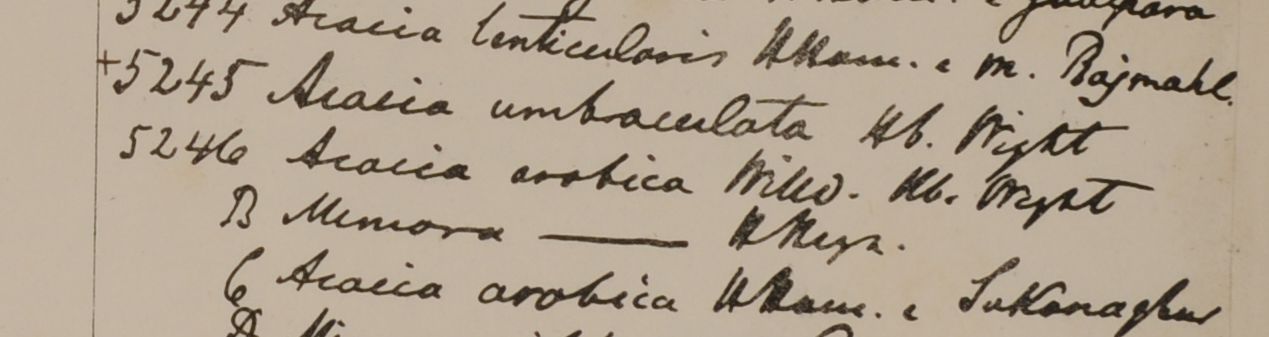 5244 Acacia lenticularis HHam. e m. Rajmahl.
+5245 Acacia umbraculata Hb. Wight
5246 Acacia arabica Willd. Hb. Wight
B Mimosa —— HHeyn.
C Acacia arabica HHam. e Sukanaghur